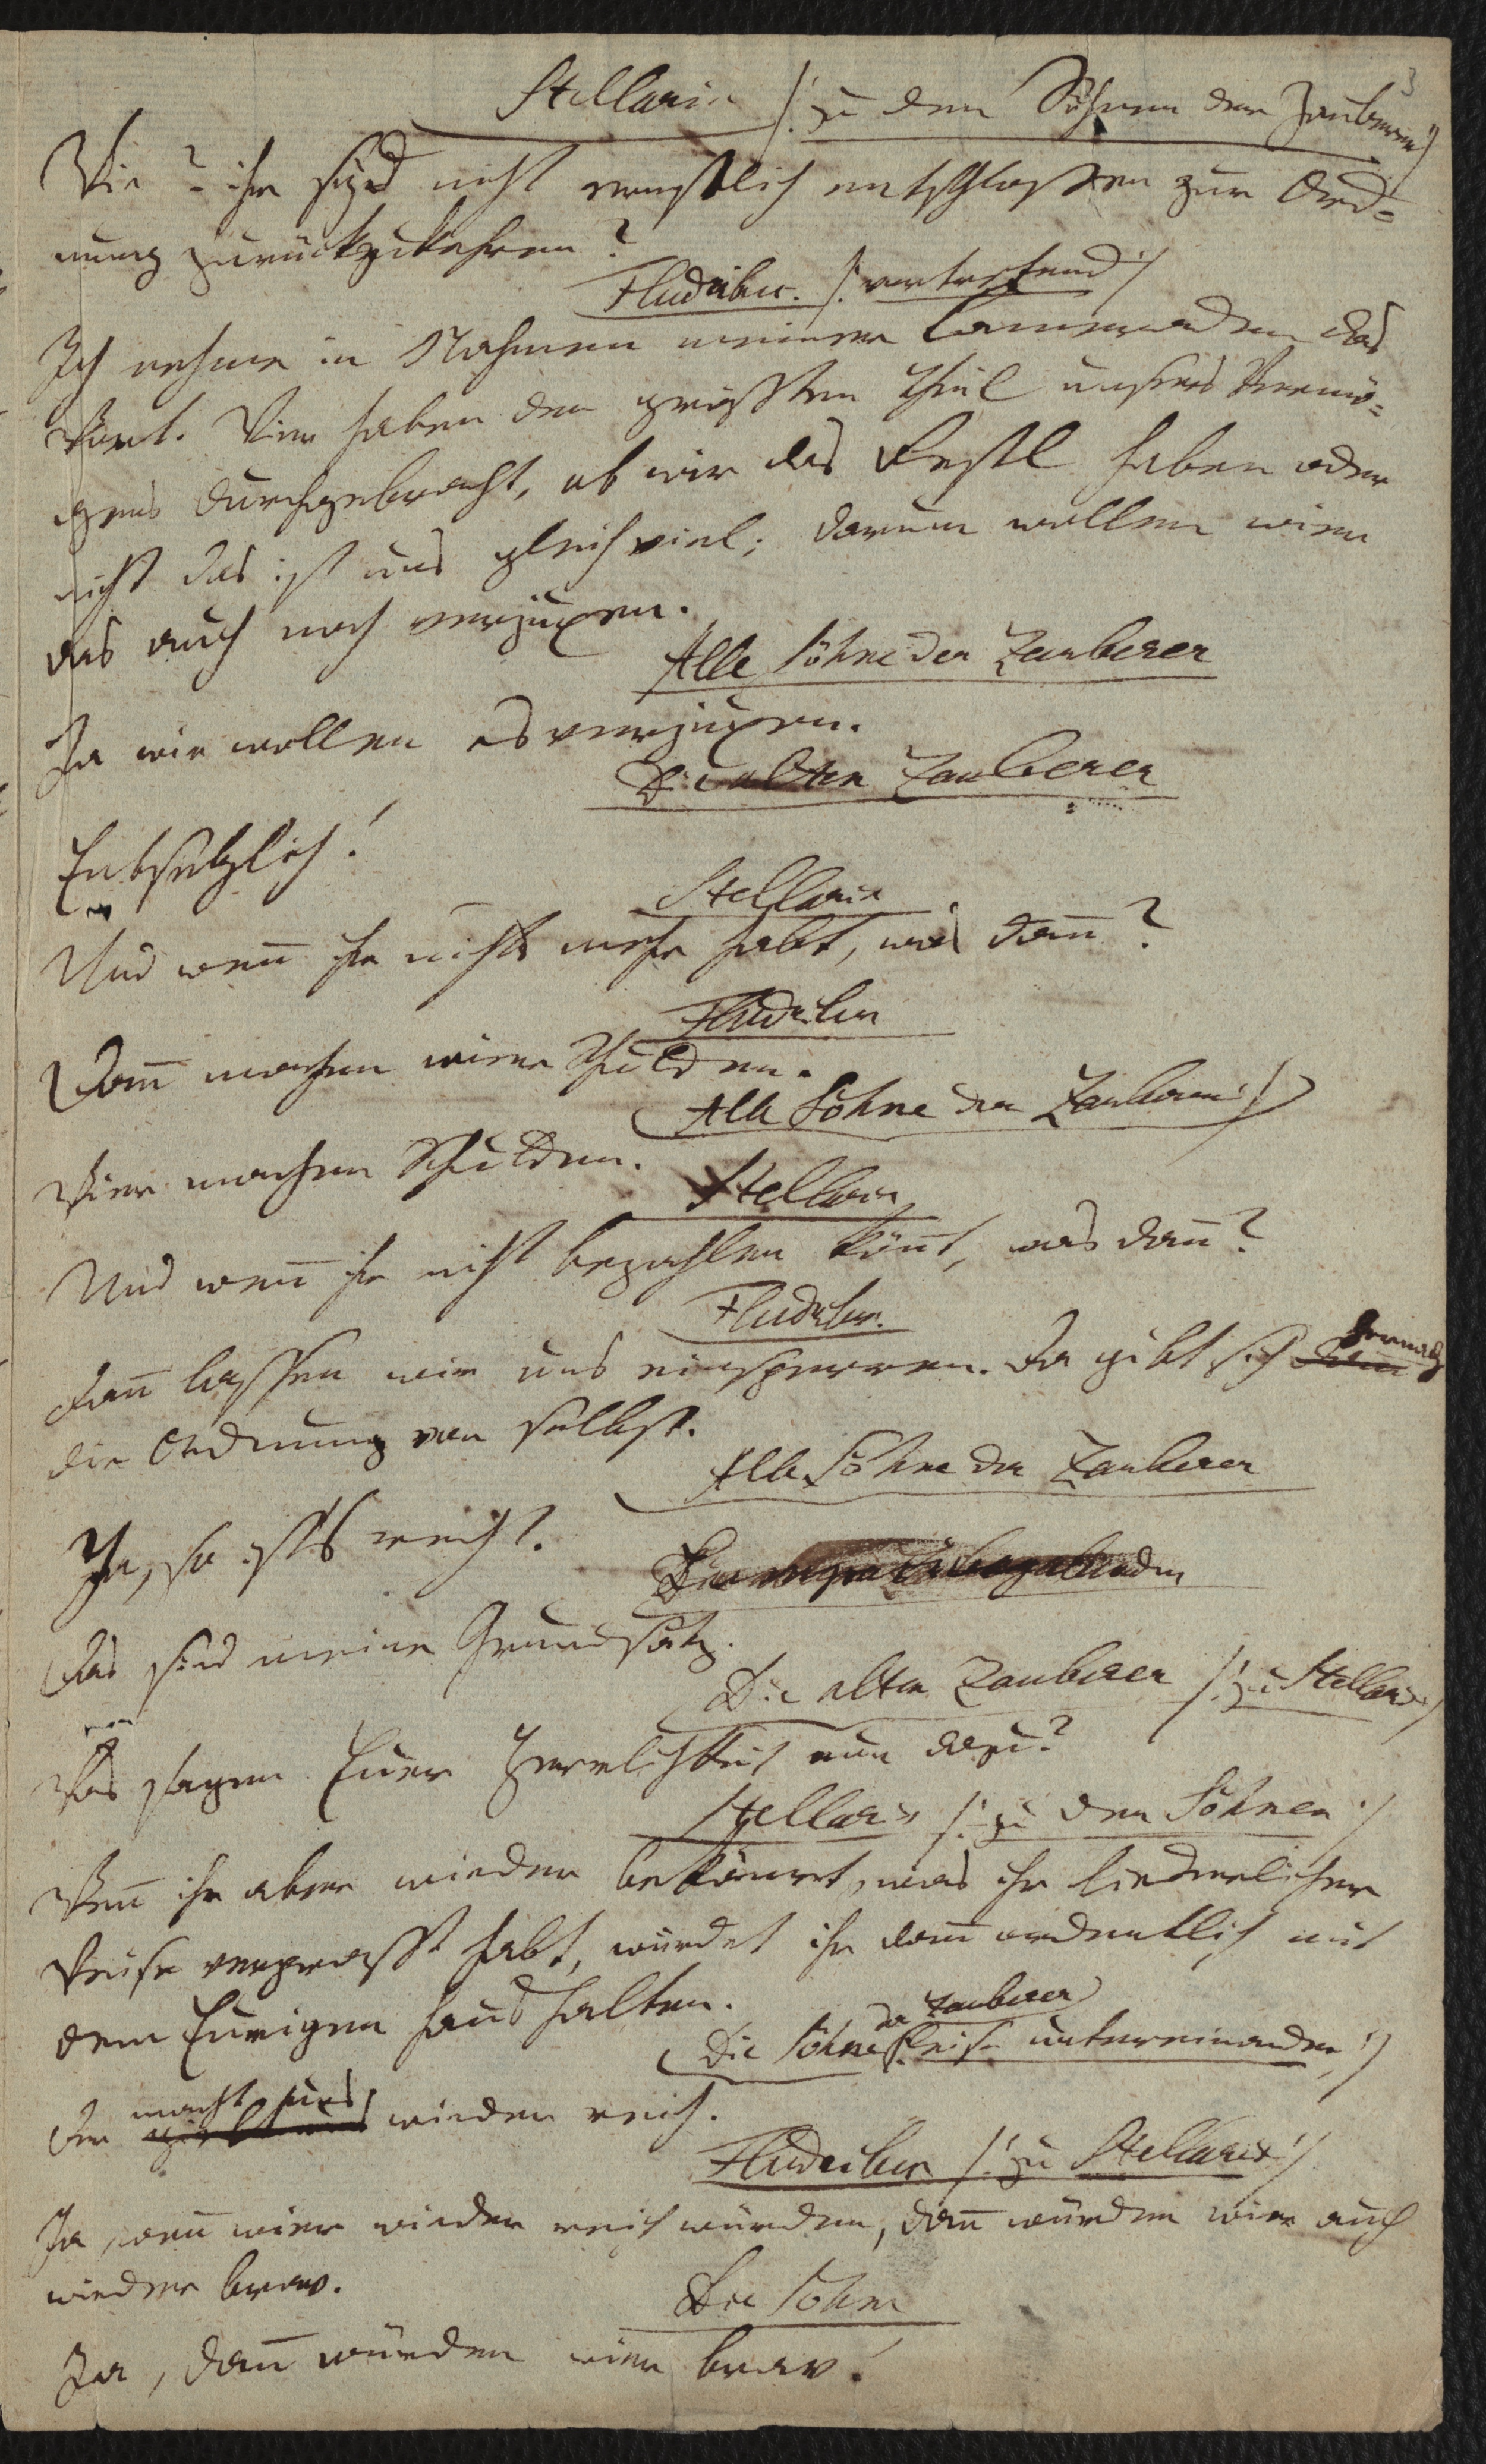 3
Stellaris /: zu den Söhnen der Zauberer :/
Wie? ihr seyd nicht ernstlich entschlossen zur Ord=
nung zurückzukehren?
Fludribus. /: vortretend :/
Ich nehme in Nahmen meiner Cameraden das
Wort. Wier haben den größten Theil unsers Vermö=
gens durchgebracht, ob wir das Restl haben oder
nicht das ist uns gleichviel; darum wollen wier
das auch noch verjuxen.
Alle Söhne der Zauberer
Ja wir wollen es verjuxen.
Die alten Zauberer
Entsetzlich!
Stellaris
Und weñ ihr nichts mehr habt, was dañ?
Fludribus
Dañ machen wier Schulden.
Alle Söhne der Zauberer :/
Wier machen Schulden.
Stellaris
Und weñ ihr nicht bezahlen köñt, was dañ?
Fludribus.
Dañ lassen wir uns einsperren. Da gibt sich hernach
die Ordnung von selbst.
Alle Söhne der Zauberer
Ja, so ists recht.
Das sind meine Grundsätz.
Die alten Zauberer /: zu Stellaris :/
Was sagen Euer Herrlichkeit nun dazu?
Stellaris /: zu den Söhnen :/
Weñ ihr aber wieder bekämet, was ihr liederlicher
Weise verpraßt habt, würdet ihr dañ ordentlich mit
dem Eurigen haushalten.
Die Söhne der Zauberer /: leise untereinander :/
Der macht uns wieder reich.
Fludribus /: zu Stellaris :/
Ja, weñ wier wieder reich würden, dañ würden wier auch
wieder brav.
Die Söhne
Ja, dañ würden wier brav!